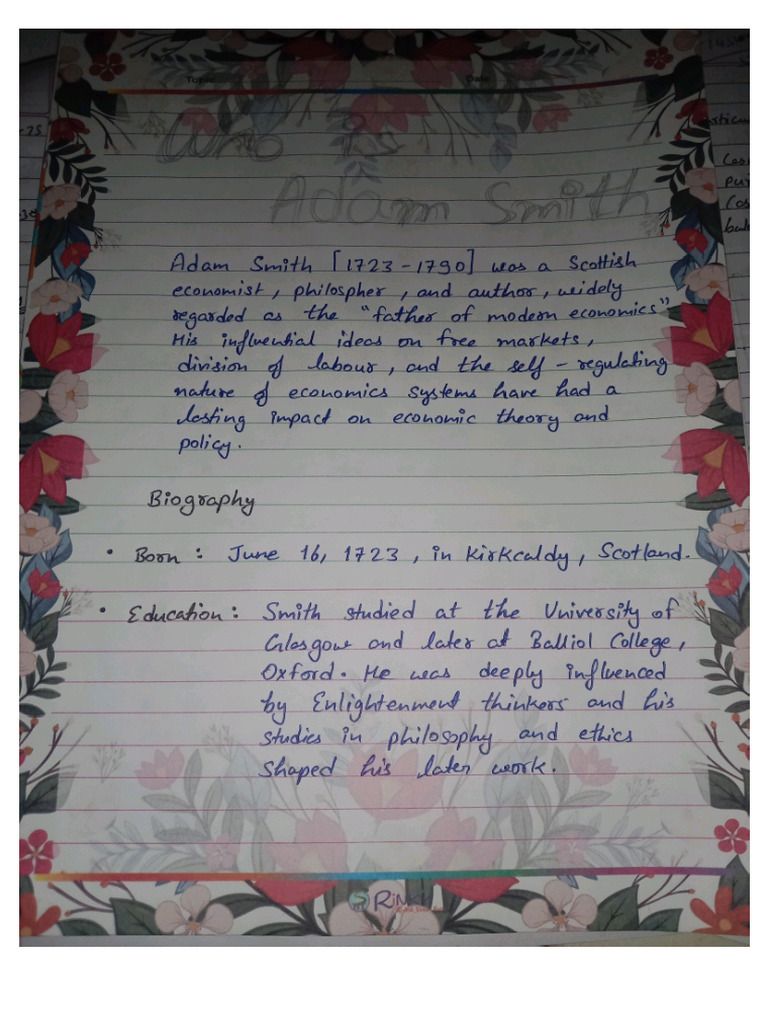 Topic
Date
Who is
Adam Smith
Adam Smith [1723-1790] was a Scottish
economist, philospher, and author, widely
regarded as the "father of modern economics"
His influential ideas on free markets,
division of labour, and the self-regulating
nature of economics systems have had a
lasting impact on economic theory and
policy.
Biography
• Born : June 16, 1723, in Kirkcaldy, Scotland.
• Education : Smith studied at the University of
Glasgow and later at Balliol College,
Oxford. He was deeply influenced
by Enlightenment thinkers and his
studies in philosophy and ethics
shaped his later work.